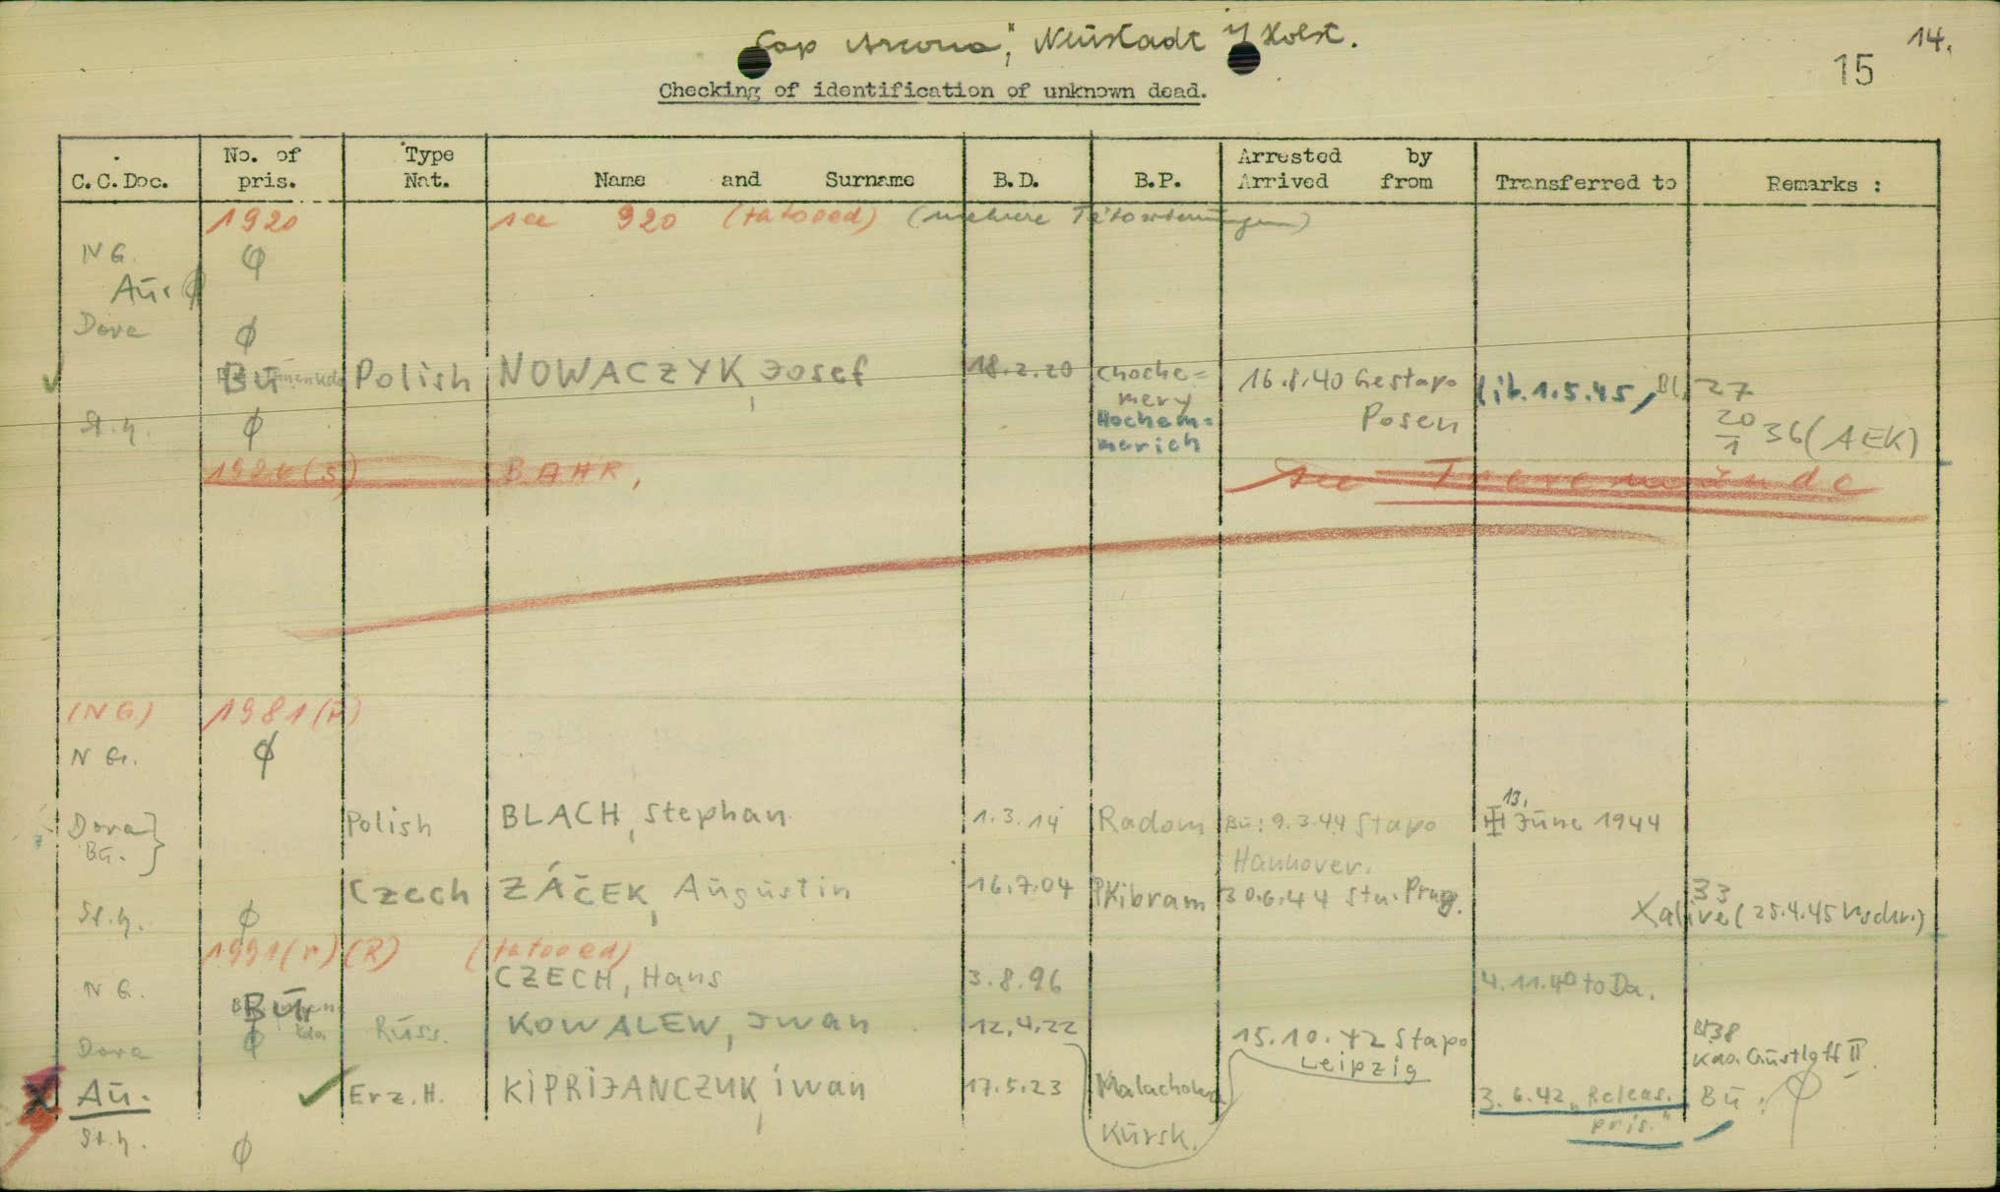 "Cap Arcona", Neustadt i/Holst.
14.
15
Checking of identification of unknown dead.
C.C.Doc. No. of pris. Type Nat. Name and Surname B.D. B.P. Arrested by Arrived from Transferred to Remarks :
1920 see 920 (tatooed) (mehrere Tätowierungen)
NG. φ
Aū. φ
Dora φ
Bū Polish NOWACZYK, Josef 18.2.20 Choche=
mery
Hochem=
merich
16.8.40 Gestapo
Posen
lib. 1.5.45, Bl. 27
20
1 36 (AEK)
St.h. φ
(S) BAHR, see Travemünde
(NG) 1981 (P)
N G. φ
Dora }
Bū. }
Polish BLACH, Stephan 1.3.14 Radom Bū: 9.3.44 Stapo
Hannover.
13. Jūne 1944
Czech ZÁČEK, Aūgūstin 16.7.04 PKibram 30.6.44 Prag. 33
St.h. φ Xalive (25.4.45)
1991 (r) (R) (tatooed)
N G. CZECH, Hans 3.8.96 4.11.40 to Da.
Bū
Dora φ Rūss. KOWALEW, Iwan 12.4.22 15.10.42 Stapo
Leipzig
Bl 38
Kdo. Gūstloff II
Aū. Erz.H. KIPRIJANCZUK, iwan 17.5.23 3.6.42 "Releas.
pris."
Bū: φ
Kūrsk.
St.h. φ